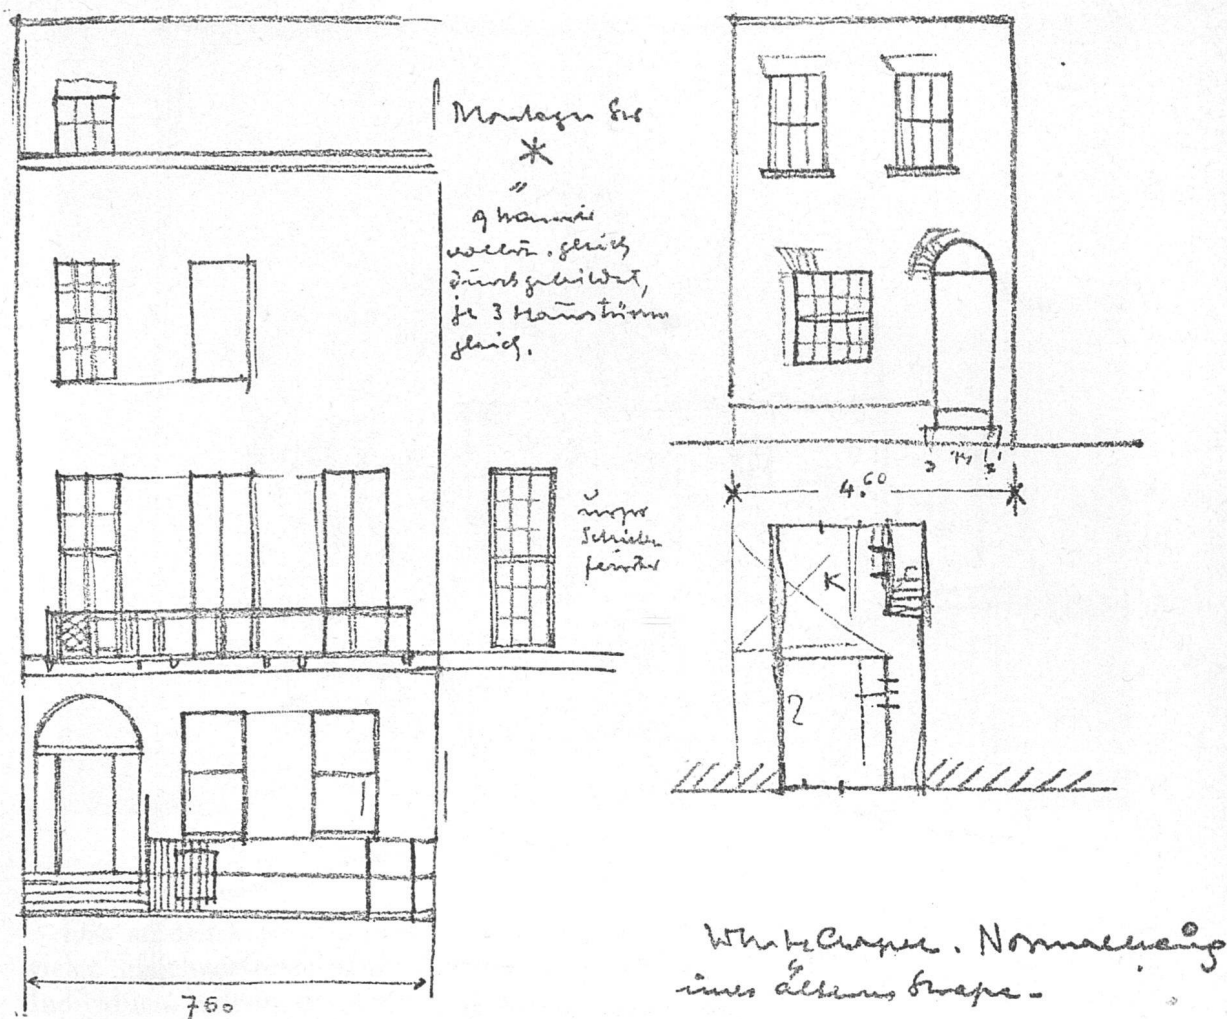 Montague
"
9 Häuser
vollst. gleich
durchgebildet,
je 3 Haustüren
gleich.
Schiebe
fenster
3 3
4.60
K
760
Whitechapel. Normalhaus
einer älteren Strasse.